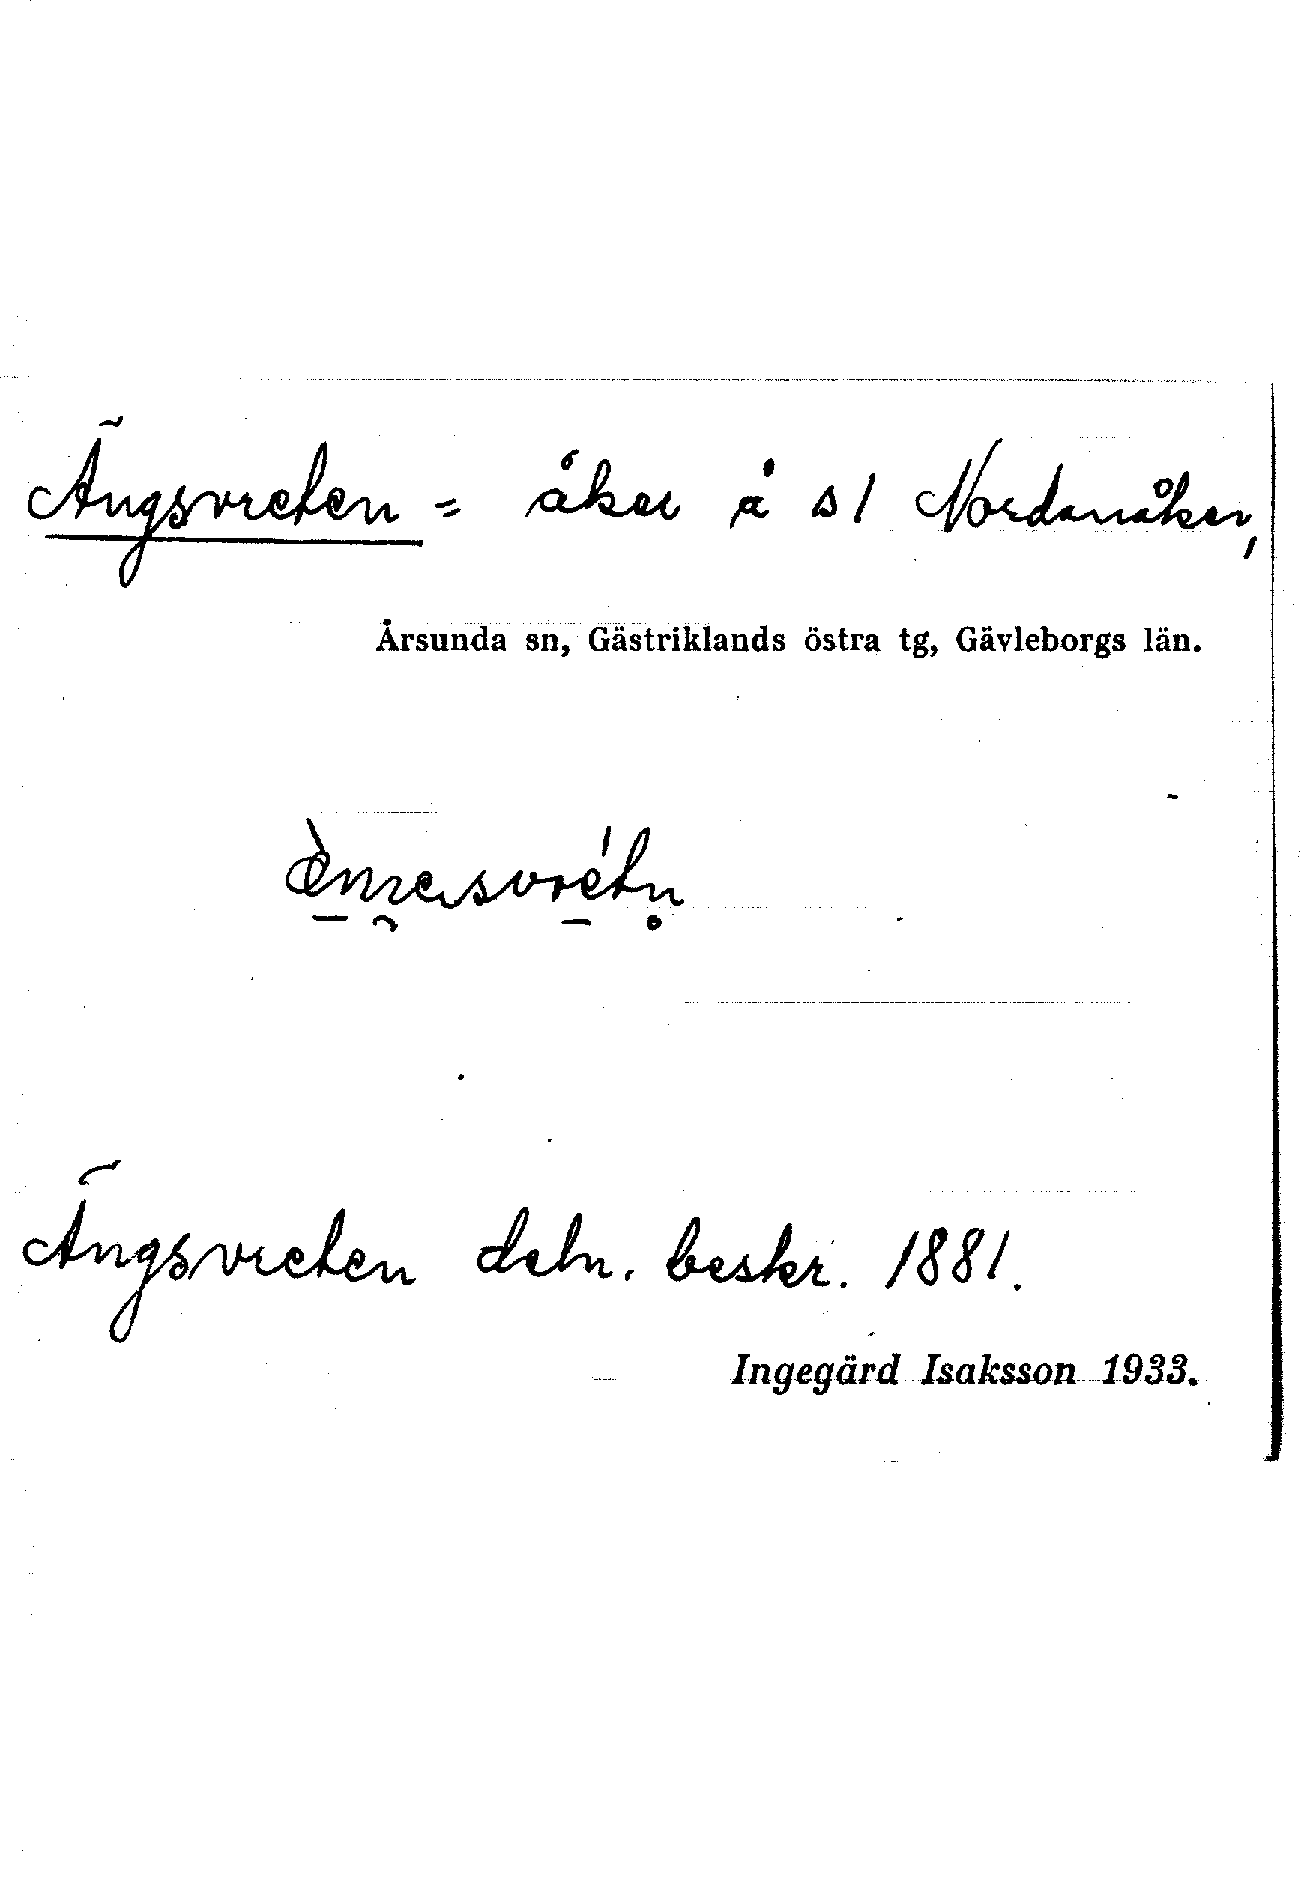 Ängsvreten = åker å s/ Nordanåker,
Årsunda sn, Gästriklands östra tg, Gävleborgs län.
Ängsvreten deln. beskr. 1881.
Ingegärd Isaksson 1933.